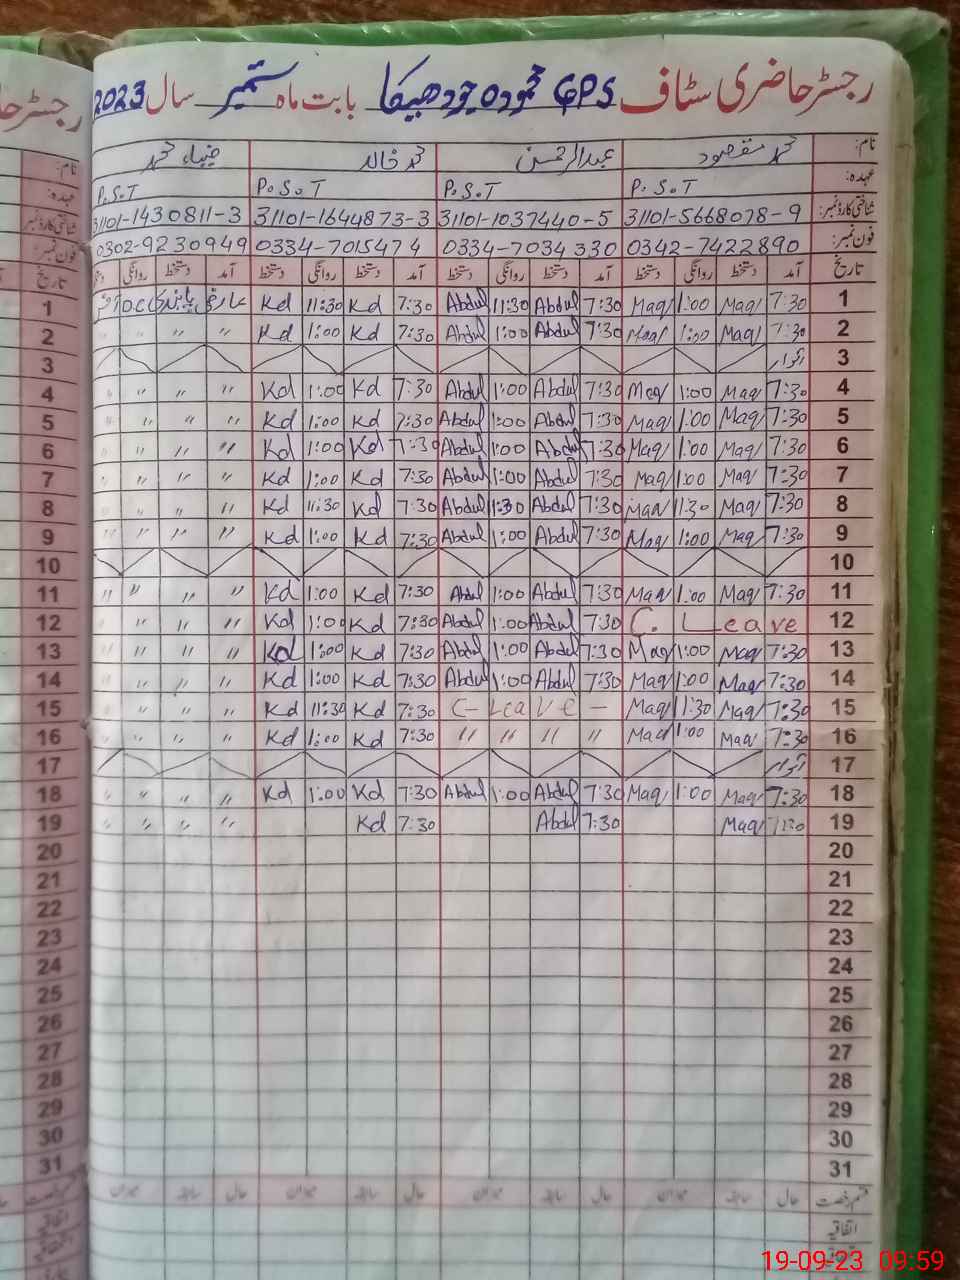 رجسٹر حاضری سٹاف GPS محمودہ چودھیکا بابت ماہ ستمبر سال 2023
نام: محمد مقصود عبدالرحمن محمد خالد ضیاء محمد
عہدہ: P.S.T P.S.T P.S.T P.S.T
شناختی کارڈ نمبر: 31101-5668078-9 31101-1037440-5 31101-1644873-3 31101-1430811-3
فون نمبر: 0342-7422890 0334-7034330 0334-7015474 0302-9230949
تاریخ آمد دستخط روانگی دستخط آمد دستخط روانگی دستخط آمد دستخط روانگی دستخط آمد دستخط روانگی
1 7:30 Maq 1:00 Maq 7:30 Abdul 11:30 Abdul 7:30 Kd 11:30 Kd عارضی
2 7:30 Maq 1:00 Maq 7:30 Abdul 1:00 Abdul 7:30 Kd 1:00 Kd " " "
3 اتوار
4 7:30 Maq 1:00 Maq 7:30 Abdul 1:00 Abdul 7:30 Kd 1:00 Kd " " " "
5 7:30 Maq 1:00 Maq 7:30 Abdul 1:00 Abdul 7:30 Kd 1:00 Kd " " " "
6 7:30 Maq 1:00 Maq 7:30 Abdul 1:00 Abdul 7:30 Kd 1:00 Kd " " " "
7 7:30 Maq 1:00 Maq 7:30 Abdul 1:00 Abdul 7:30 Kd 1:00 Kd " " " "
8 7:30 Maq 11:30 Maq 7:30 Abdul 11:30 Abdul 7:30 Kd 11:30 Kd " " " "
9 7:30 Maq 1:00 Maq 7:30 Abdul 1:00 Abdul 7:30 Kd 1:00 Kd " " " "
10
11 7:30 Maq 1:00 Maq 7:30 Abdul 1:00 Abdul 7:30 Kd 1:00 Kd " " " "
12 C. Leave 7:30 Abdul 1:00 Abdul 7:30 Kd 1:00 Kd " " " "
13 7:30 Maq 1:00 Maq 7:30 Abdul 1:00 Abdul 7:30 Kd 1:00 Kd " " " "
14 7:30 Maq 1:00 Maq 7:30 Abdul 1:00 Abdul 7:30 Kd 1:00 Kd " " " "
15 7:30 Maq 11:30 Maq C- Leave - 7:30 Kd 11:30 Kd " " " "
16 7:30 Maq 1:00 Maq " " " " 7:30 Kd 1:00 Kd " " " "
17 اتوار
18 7:30 Maq 1:00 Maq 7:30 Abdul 1:00 Abdul 7:30 Kd 1:00 Kd " " " "
19 7:30 Maq 7:30 Abdul 7:30 Kd " " " "
20
21
22
23
24
25
26
27
28
29
30
31
قسم رخصت حال سابقہ میزان حال سابقہ میزان حال سابقہ میزان حال سابقہ میزان
اتفاقیہ
نام:
عہدہ:
شناختی کارڈ نمبر
فون نمبر:
تاریخ
1
2
3
4
5
6
7
8
9
10
11
12
13
14
15
16
17
18
19
20
21
22
23
24
25
26
27
28
29
30
31
اتفاقیہ
19-09-23 09:59